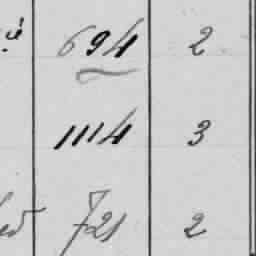 694 2
1114 3
721 2